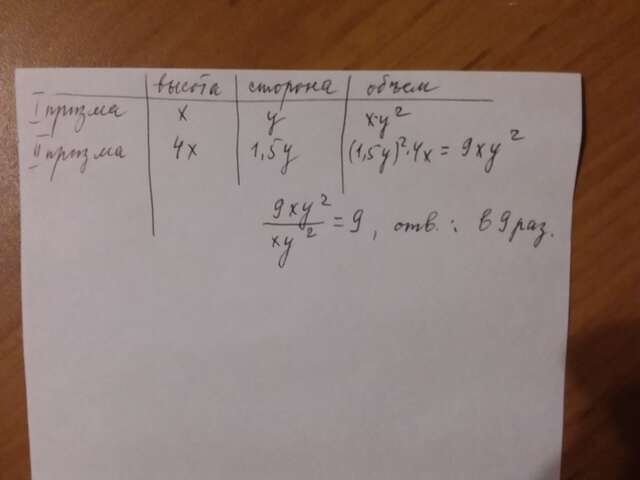 высота сторона объем
I призма x y x·y²
II призма 4x 1,5y (1,5y)²·4x = 9xy²
9xy²/xy² = 9, отв.: в 9 раз.